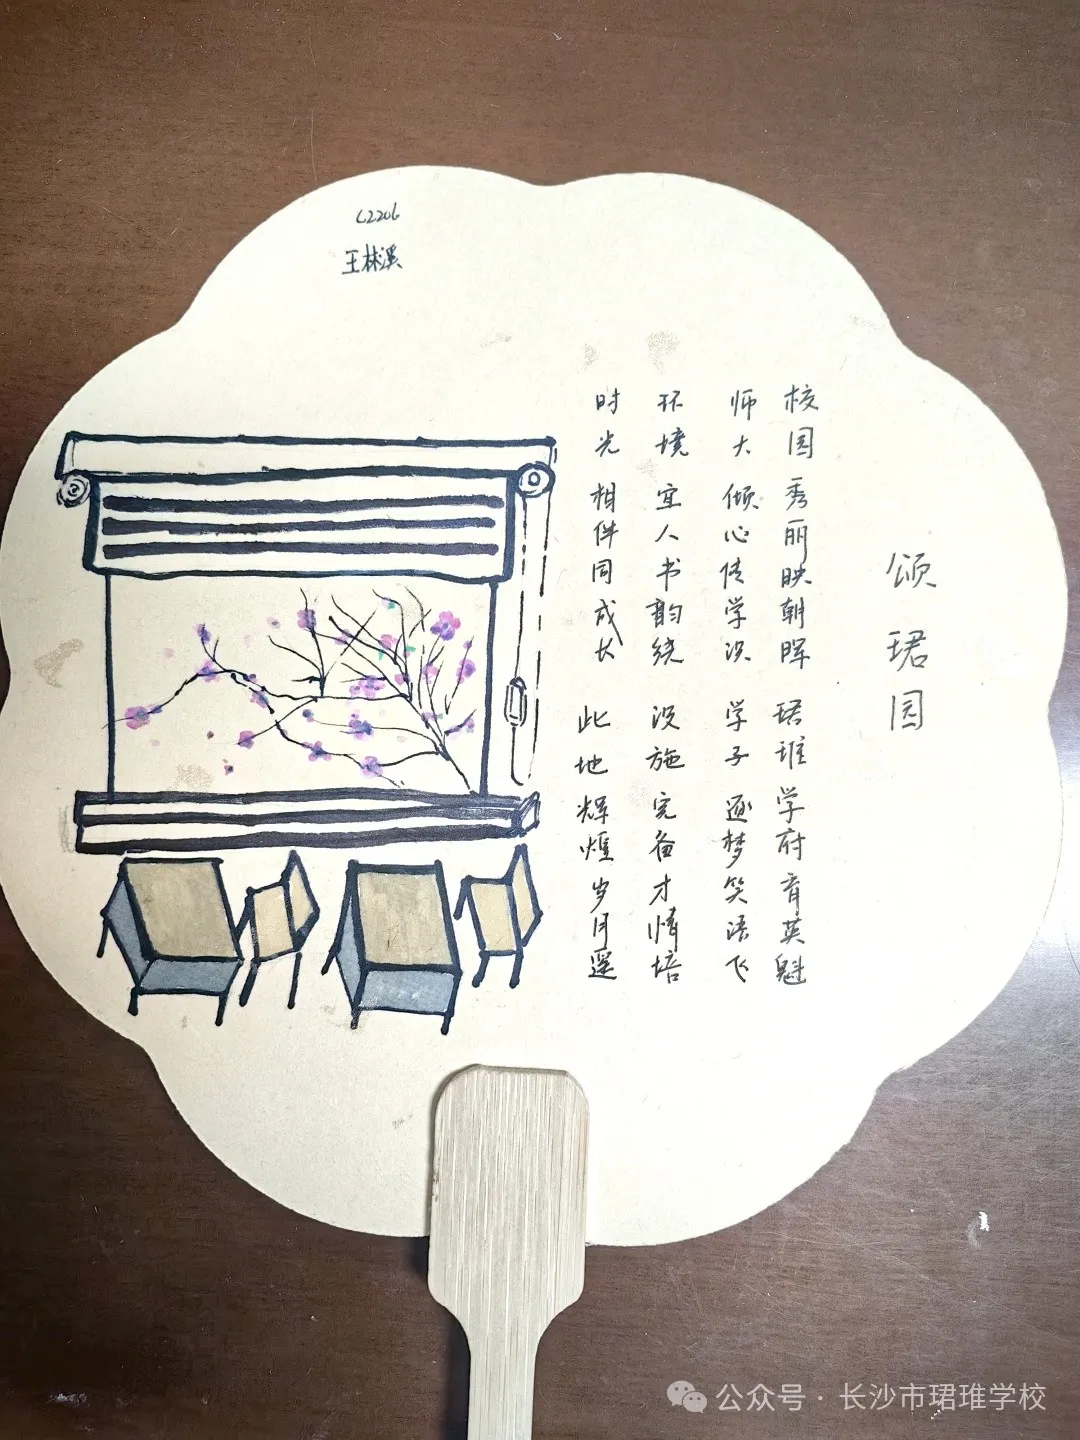 C2206
王林溪
颂珺园
校园秀丽映朝晖 珺琟学府育英魁
师大倾心传学识 学子逐梦笑语飞
环境宜人书韵绕 设施完备才情培
时光相伴同成长 此地辉煌岁月遥
公众号·长沙市珺琟学校